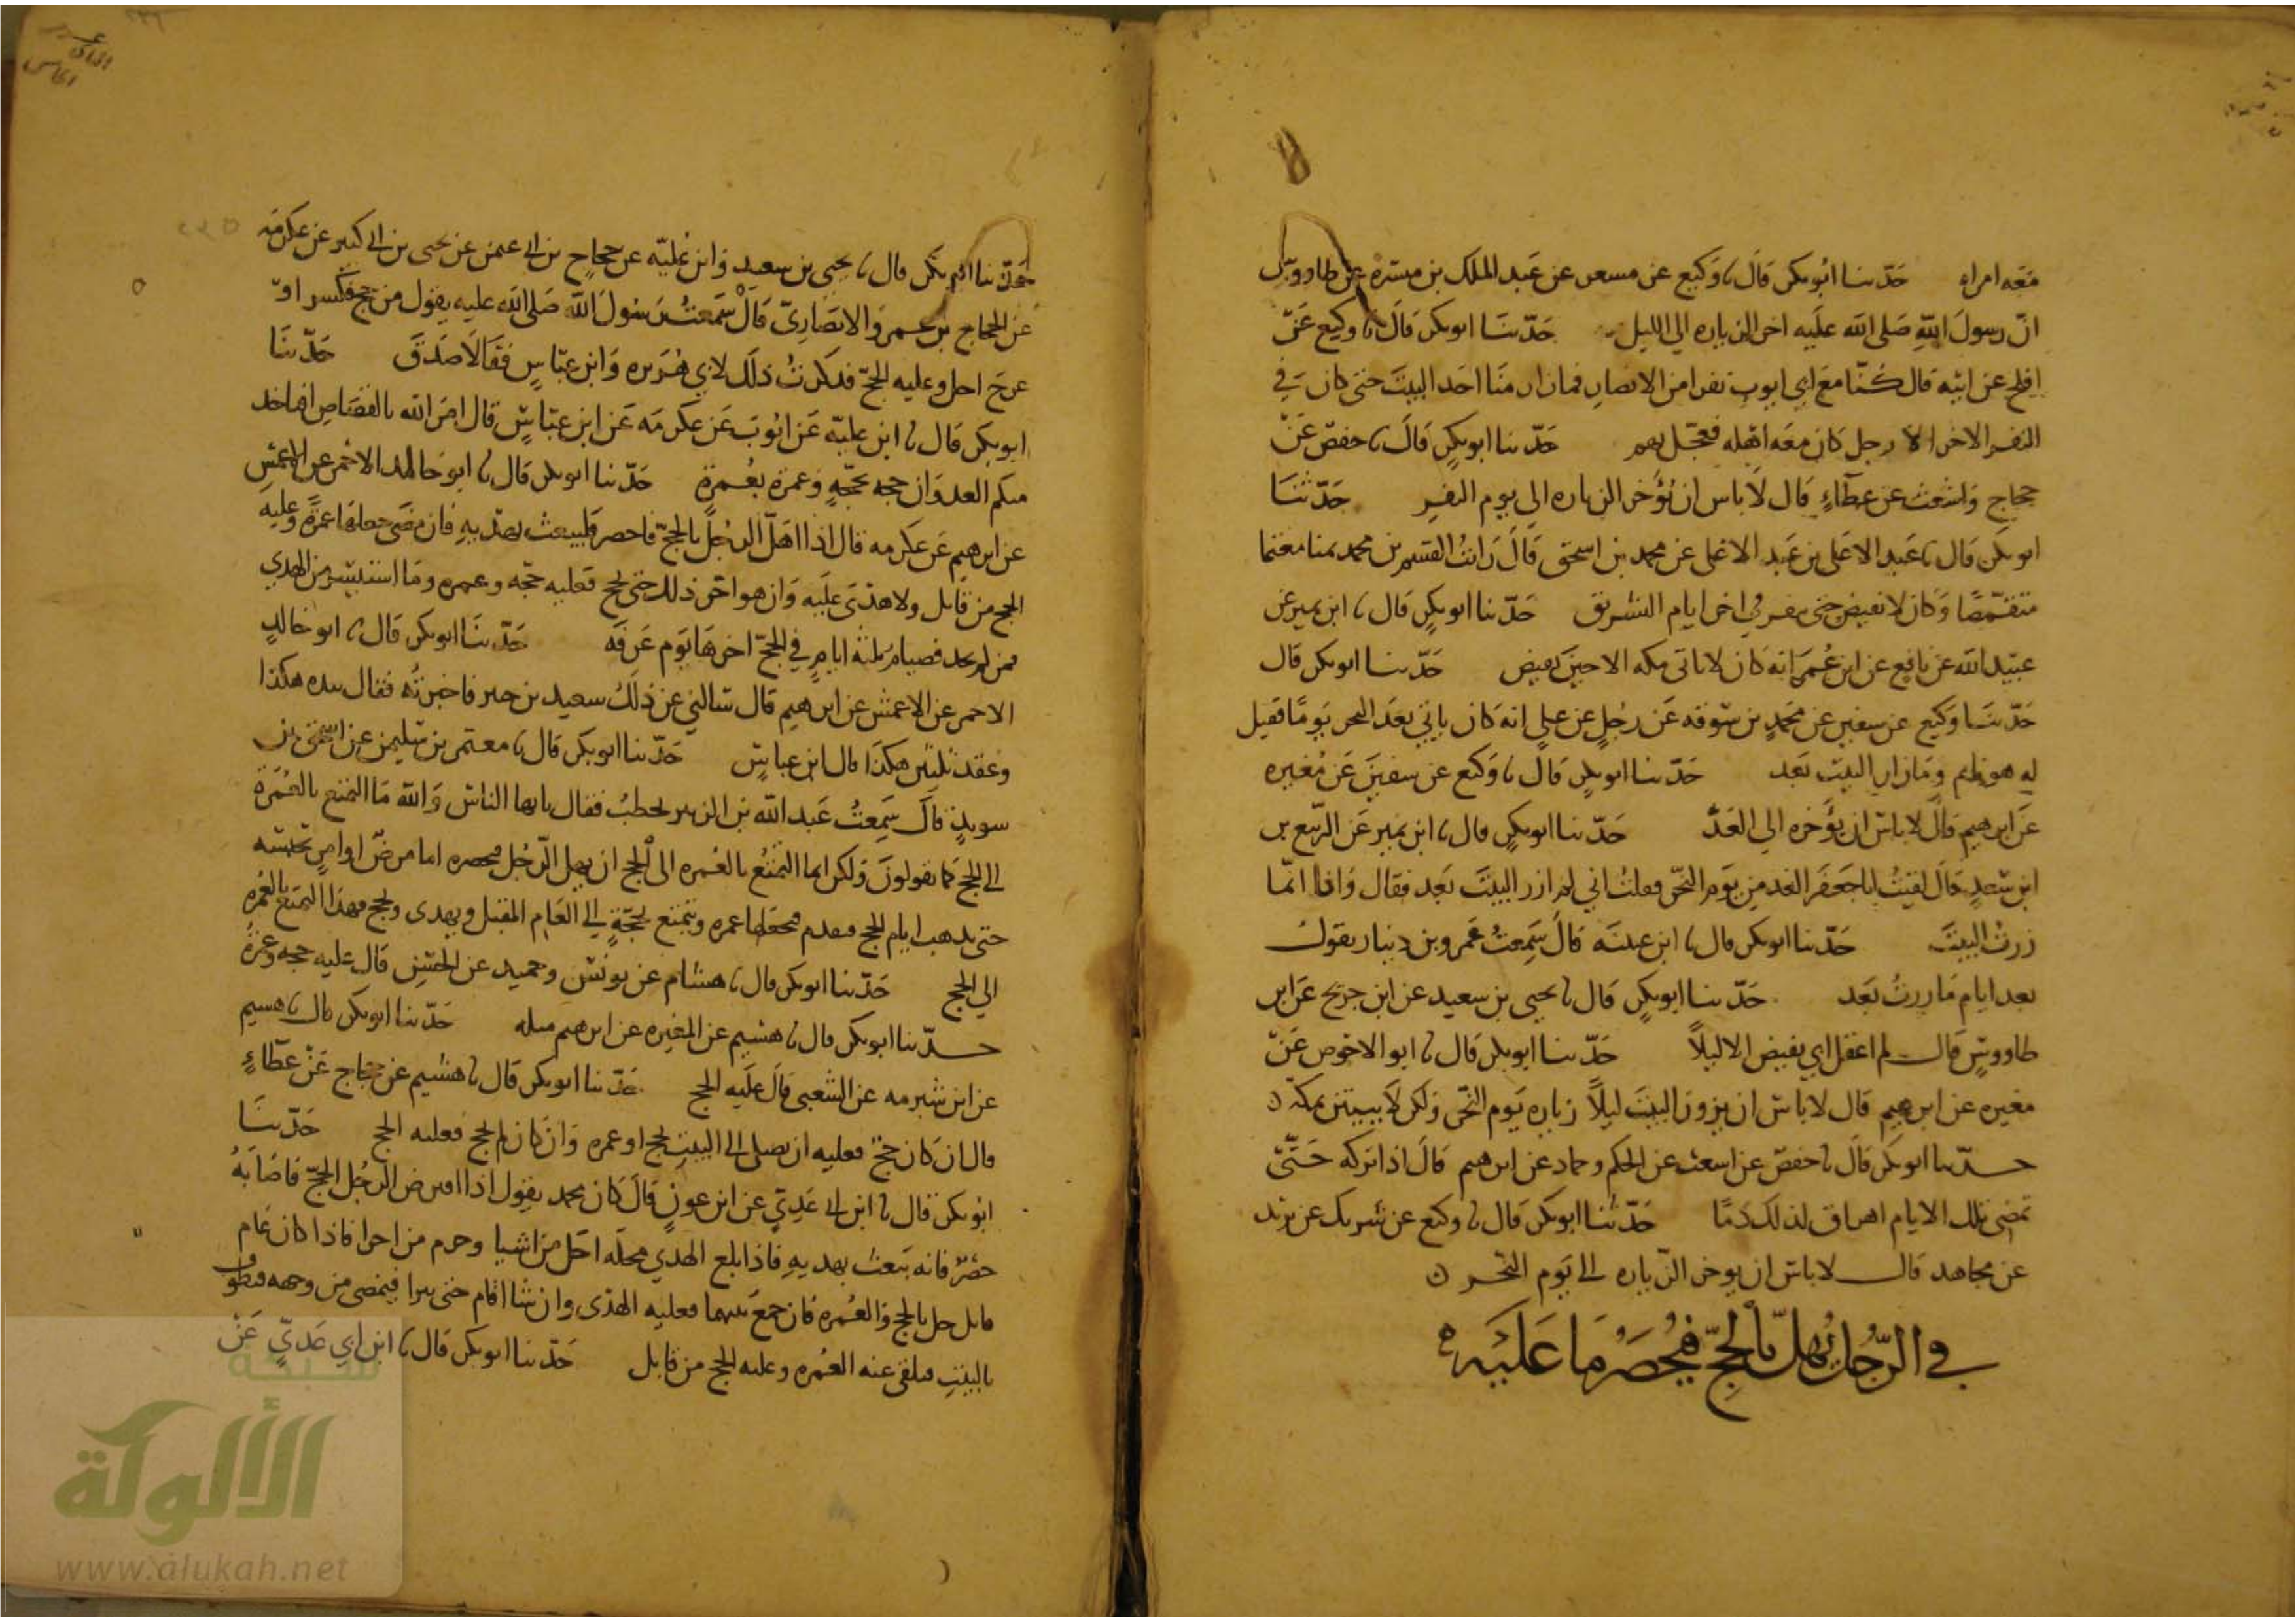 معه امراه حدثنا ابو بكر قال نا وكيع عن مسعر عن عبد الملك بن ميسره عن طاووس
ان رسول الله صلى الله عليه اخر الزياره الي الليل حدثنا ابو بكر قال نا وكيع عن
افلح عن ابيه قال كنا مع ابي ايوب نفرا من الانصار فما زار منا احد البيت حتى كان في
النفر الاخر الا رجل كان معه اهله فتعجل بهم حدثنا ابو بكر قال نا حفص عن
حجاج واشعث عن عطاء قال لا باس ان يؤخر الزياره الى يوم النفر حدثنا
ابو بكر قال نا عبد الاعلى بن عبد الاعلى عن محمد بن اسحق قال رايت القسم بن محمد بمنا معتما
متقمصا وكان لا يفيض حتى ينفر في اخر ايام التشريق حدثنا ابو بكر قال نا ابن نمير عن
عبيد الله عن نافع عن ابن عمر انه كان لا ياتي مكه الا حين يفيض حدثنا ابو بكر قال
حدثنا وكيع عن سفين عن محمد بن سوقه عن رجل عن علي انه كان ياتي بعد النحر يوما فقيل
له هو نايم وما زار البيت بعد حدثنا ابو بكر قال نا وكيع عن سفين عن مغيره
عن ابرهيم قال لا باس ان يؤخره الي الغد حدثنا ابو بكر قال نا ابن نمير عن الربيع بن
ابن سعد قال لقيت ابا جعفر الغد من يوم النحر فقلت اني لم ازر البيت بعد فقال وانا انما
زرت البيت حدثنا ابو بكر قال نا ابن عيينه قال سمعت عمرو بن دينار يقول
بعد ايام ما زرت بعد حدثنا ابو بكر قال نا يحيى بن سعيد عن ابن جريج عن ابن
طاووس قال لم اعقل ابي يفيض الا ليلا حدثنا ابو بكر قال نا ابو الاحوص عن
مغيره عن ابرهيم قال لا باس ان يزور البيت ليلا زياره يوم النحر ولكن لا يبيتن بمكه
حدثنا ابو بكر قال نا حفص عن اشعث عن الحكم وحماد عن ابرهيم قال اذا تركه حتى
تمضي تلك الايام اهراق لذلك دما حدثنا ابو بكر قال نا وكيع عن شريك عن يزيد
عن مجاهد قال لا باس ان يوخر الزياره الي يوم النحر
في الرجل يهل بالحج فيحصر ما عليه
حدثنا ابو بكر قال نا يحيى بن سعيد وابن عليه عن حجاج بن ابي عثمن عن يحيى بن ابي كثير عن عكرمه
عن الحجاج بن عمرو الانصاري قال سمعت رسول الله صلى الله عليه يقول من حج فكسر او
عرج احل وعليه الحج فذكرت ذلك لابي هريره وابن عباس فقالا صدق حدثنا
ابو بكر قال نا ابن عليه عن ايوب عن عكرمه عن ابن عباس قال امر الله بالقصاص افياخذ
منكم العدوان حجه بحجه وعمرة بعمرة حدثنا ابو بكر قال نا ابو خالد الاحمر عن الاعمش
عن ابرهيم عن عكرمه قال اذا اهل الرجل بالحج فاحصر فليبعث بهديه فان مضى جعلها عمرة وعليه
الحج من قابل ولا هدى عليه وان هو اخر ذلك حتى يحج فعليه حجه وعمره وما استيسر من الهدي
فمن لم يجد فصيام ثلثه ايام في الحج اخرها يوم عرفه حدثنا ابو بكر قال نا ابو خالد
الاحمر عن الاعمش عن ابرهيم قال سالني عن ذلك سعيد بن جبير فاخبرته فقال بيده هكذا
وعقد ثلثين هكذا قال ابن عباس حدثنا ابو بكر قال نا معتمر بن سليمن عن اسحق بن
سويد قال سمعت عبد الله بن الزبير يخطب فقال يا ايها الناس والله ما التمتع بالعمرة
الى الحج كما تقولون ولكن انما التمتع بالعمره الى الحج ان يهل الرجل فيحصره اما مرض او امر يحبسه
حتى يذهب ايام الحج فيقدم فيجعلها عمره ويتمتع بحجة الي العام المقبل ويهدى ويحج فهذا التمتع بالعمره
الي الحج حدثنا ابو بكر قال نا هشام عن يونس وحميد عن الحسن قال عليه حجه وعمرة
حدثنا ابو بكر قال نا هشيم عن المغيره عن ابرهيم مثله حدثنا ابو بكر قال نا هشيم
عن ابن شبرمه عن الشعبي قال عليه الحج حدثنا ابو بكر قال نا هشيم عن حجاج عن عطاء
قال ان كان حج فعليه ان يصل الى البيت بحج او عمره وان كان لم يحج فعليه الحج حدثنا
ابو بكر قال نا ابن ابي عدي عن ابن عون قال كان محمد يقول اذا فرض الرجل الحج فاصابه
حصر فانه يبعث بهديه فاذا بلغ الهدي محله احل من اشيا وحرم من اخرا فاذا كان عام
قابل حل بالحج والعمره فان جمع بينهما فعليه الهدى وان شا اقام حتى يبرا فيمضي من وجهه فيطوف
بالبيت فيلقي عنه العمره وعليه الحج من قابل حدثنا ابو بكر قال نا ابن ابي عدي عن
شبكة
الألوكة
www.alukah.net